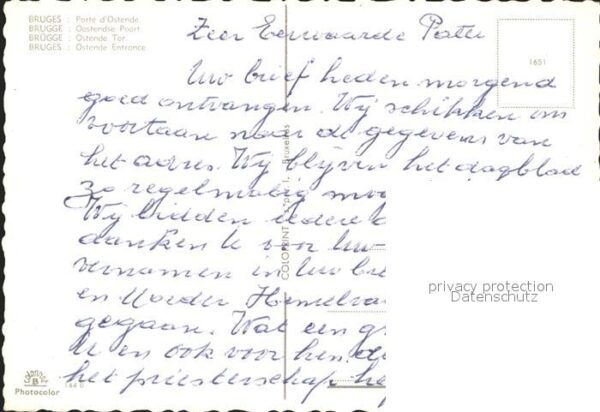 BRUGES : Porte d'Ostende.
BRUGGE : Oostendse Poort.
BRÜGGE : Ostende Tor.
BRUGES : Ostende Entrance.
1651
Zeer Eerwaarde Pater
Uw brief heden morgend
goed ontvangen. Wij schikken ons
voortaan naar de gegevens van
het adres. Wij blijven het dagblad
zo regelmatig
Wij bidden iedere
danken U voor Uw
vernamen in Uw
en Moeder
gegaan. Wat een
U en ook voor hen.
het priesterschap
COLORPRINT
Bruxelles
privacy protection
Datenschutz
B
Photocolor